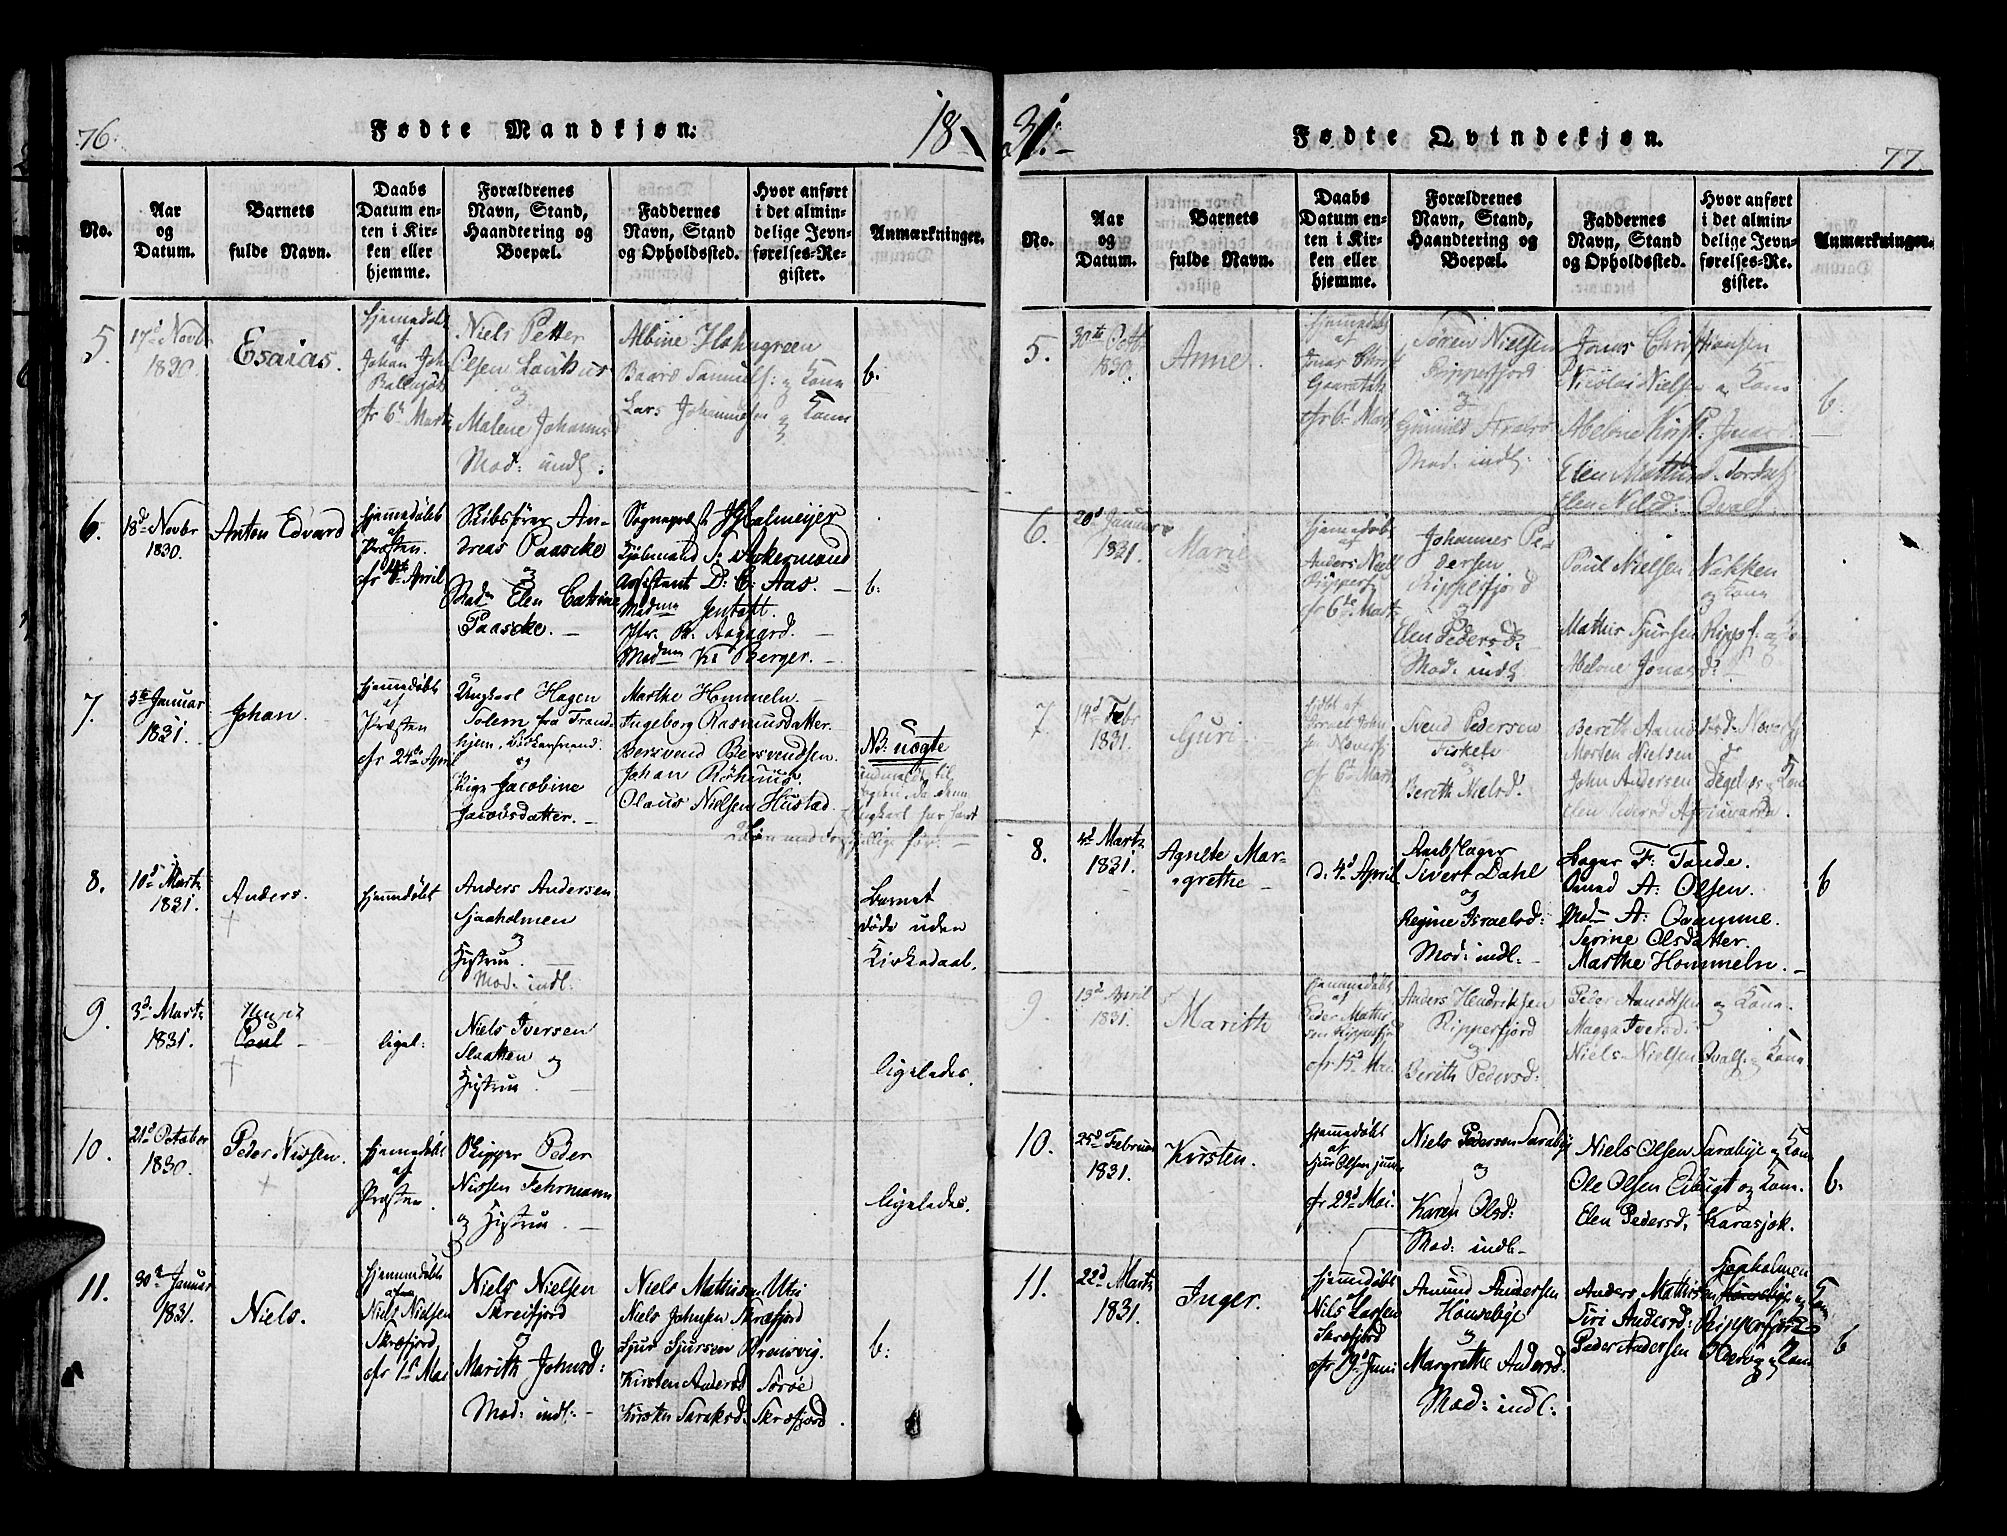 76.
Fødte Mandkjøn.
18
No.
Aar
og
Datum.
Barnets
fulde Navn.
Daabs
Datum en-
ten i Kir-
ken eller
hjemme.
Forældrenes
Navn, Stand,
Haandtering og
Boepæl.
Faddernes
Navn, Stand
og Opholdssted.
Hvor anført
i det almin-
delige Jevn-
førelses-Re-
gister.
Anmærkninger.
5.
17d Novbr
1830
Esaias.
hjemmedøbt
af
Johan Joh
cfr 6te Martz
Niels Petter
Olsen
og
Malene Johannesd
Mod: indl:
Albine Holmgreen
Baard Samuels: og Kone
Lars Johannesen og Kone
b.
6.
18d Novbr
1830.
Anton Edvard
hjemmedøbt
af
Præsten.
cfr 4de April
Skibsfører An-
dreas Paascke
og
Madm Elen Catrine
Paascke.
Ackermand
Assistent D: C: Aas.
Madme Jentoft.
Jfr. B. Aagaard.
Madme K: Berger.
b.
7.
5te Januar
1831.
Johan.
hjemmedøbt
af
Præsten
cfr 24de April
Ungkarl Hagen
Solem fra Trond-
hjem,
og
Pige Jacobine
Jacobsdatter.
Marthe Hommeln
Ingeborg Rasmusdatter.
Bersvend Bersvendsen.
Johan
Olaus Nielsen Hustad.
NB: uægte
8.
10d Martz
1831.
Anders.
hjemmedøbt
Anders Andersen
Sjaaholmen
og
Hustrue.
Mod: indl:
Barnet
døde uden
Kirkedaab.
9.
3d Martz
1831.
Henrik
Poul
ligel:
Niels Iversen
Slaatten
og
Hustrue
ligeledes.
10.
21d October
1830.
Peder Nissen.
hjemmedøbt
af
Præsten.
Skipper Peder
Nissen Fehrmann
og Hustrue.
ligeledes.
11.
30d Januar
1831.
Niels.
hjemmedøbt
af
Niels Nielsen
Skræfjord
cfr 1ste Mai
Niels Nielsen
Skreifjord
og
Marith Johnsd:
Mod: indl:
Niels Mathisen
Niels Johnsen Skræfjord
Sjur Sjursen
Kirsten Andersd Sørøe
Kirsten Saraksd: Skræfjord.
b:
31.
Fødte Qvindekjøn.
77.
No.
Aar
og
Datum.
Barnets
fulde Navn.
Daabs
Datum en-
ten i Kir-
ken eller
hjemme.
Forældrenes
Navn, Stand,
Haandtering og
Boepæl.
Faddernes
Navn, Stand
og Opholdssted.
Hvor anført
i det almin-
delige Jevn-
førelses-Re-
gister.
Anmærkninger.
5.
30te Octb
1830.
Anne.
hjemmedøbt
af
Jonas Christ
cfr 6d Mart
Søren Nielsen
Ripperfjord
og
Mod: indl:
Jonas Christiansen
Nicolai Nielsen og Kone
Abelone
Elen
Elen Nilsd: Qvalf.
b.
6.
20d Januar
1831.
Marie
hjemmedøbt
af
Anders Niels
Ripperf
cfr 6te Martz
Johannes Pe-
dersen
Ripperfjord
og
Elen Pedersd:
Mod: indl
Poul Nielsen Nakken
og Kone
Mathis Sjursen Rippf: og Ko
Abelone Jonasd:
7.
14d Febr
1831.
Guri.
cfr 6d Martz
Svend Pedersen
og
Bereth Nielsd:
Bereth Amundsd:
Morten Nielsen
John Andersen
8.
4d Martz
1831.
Agnete Mar-
grethe
d. 4d April
Sivert Dahl
og
Regine Israelsd:
Mod: indl:
Bager F: Tande.
Smed A: Olsen.
Madm A: Qvamme.
Serine Olsdatter.
Marthe Hommeln.
b
9.
13d April
1831.
Marith
hjemmedøbt
af
Peder Mathis
sen Ripperfjo
cfr 15d Mai
Anders Hendriksen
Ripperfjord
og
Berith Pedersd:
Peder Amundsen og Kone.
Magga Iversd:
Niels Nielsen Qvalf: og Kone
10.
25d Februar
1831.
Kirsten.
hjemmedøbt
af
Sjur Olsen
cfr 29d Mai.
Niels Pedersen Saraby
og
Karen Olsd:
Mod: indl.
Niels Olsen Sarabye og Kone
Ole Olsen Eibugt og Kone.
Elen Pedersd, Karasjok.
b.
11.
22d Martz
1831.
Inger.
hjemmedøbt
af
Nils Larsen
Skræfjord
cfr 19d Juni
Amund Andersen
Honsebye
og
Margrethe Andersd:
Mod: indl:
Sjaaholmen
Anders Mathisen Honsebye og Kone
Siri Andersd: Ripperfjord
Peder Andersen og Kone
b